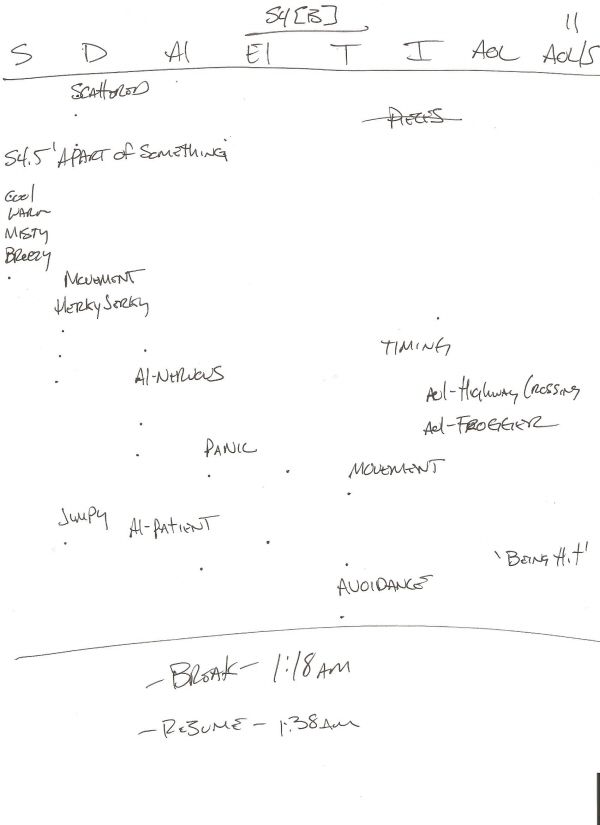 S4[B]
11
S D AI EI T I AOL AOL/S
SCATTERED
PIECES
S4.5 'A PART OF SOMETHING'
COOL
WARM
MISTY
BREEZY
MOVEMENT
HERKY JERKY
TIMING
AI-NERVOUS
AOL-HIGHWAY CROSSING
AOL-FROGGER
PANIC
MOVEMENT
JUMPY AI-PATIENT
'BEING HIT'
AVOIDANCE
-BREAK- 1:18AM
-RESUME- 1:38AM